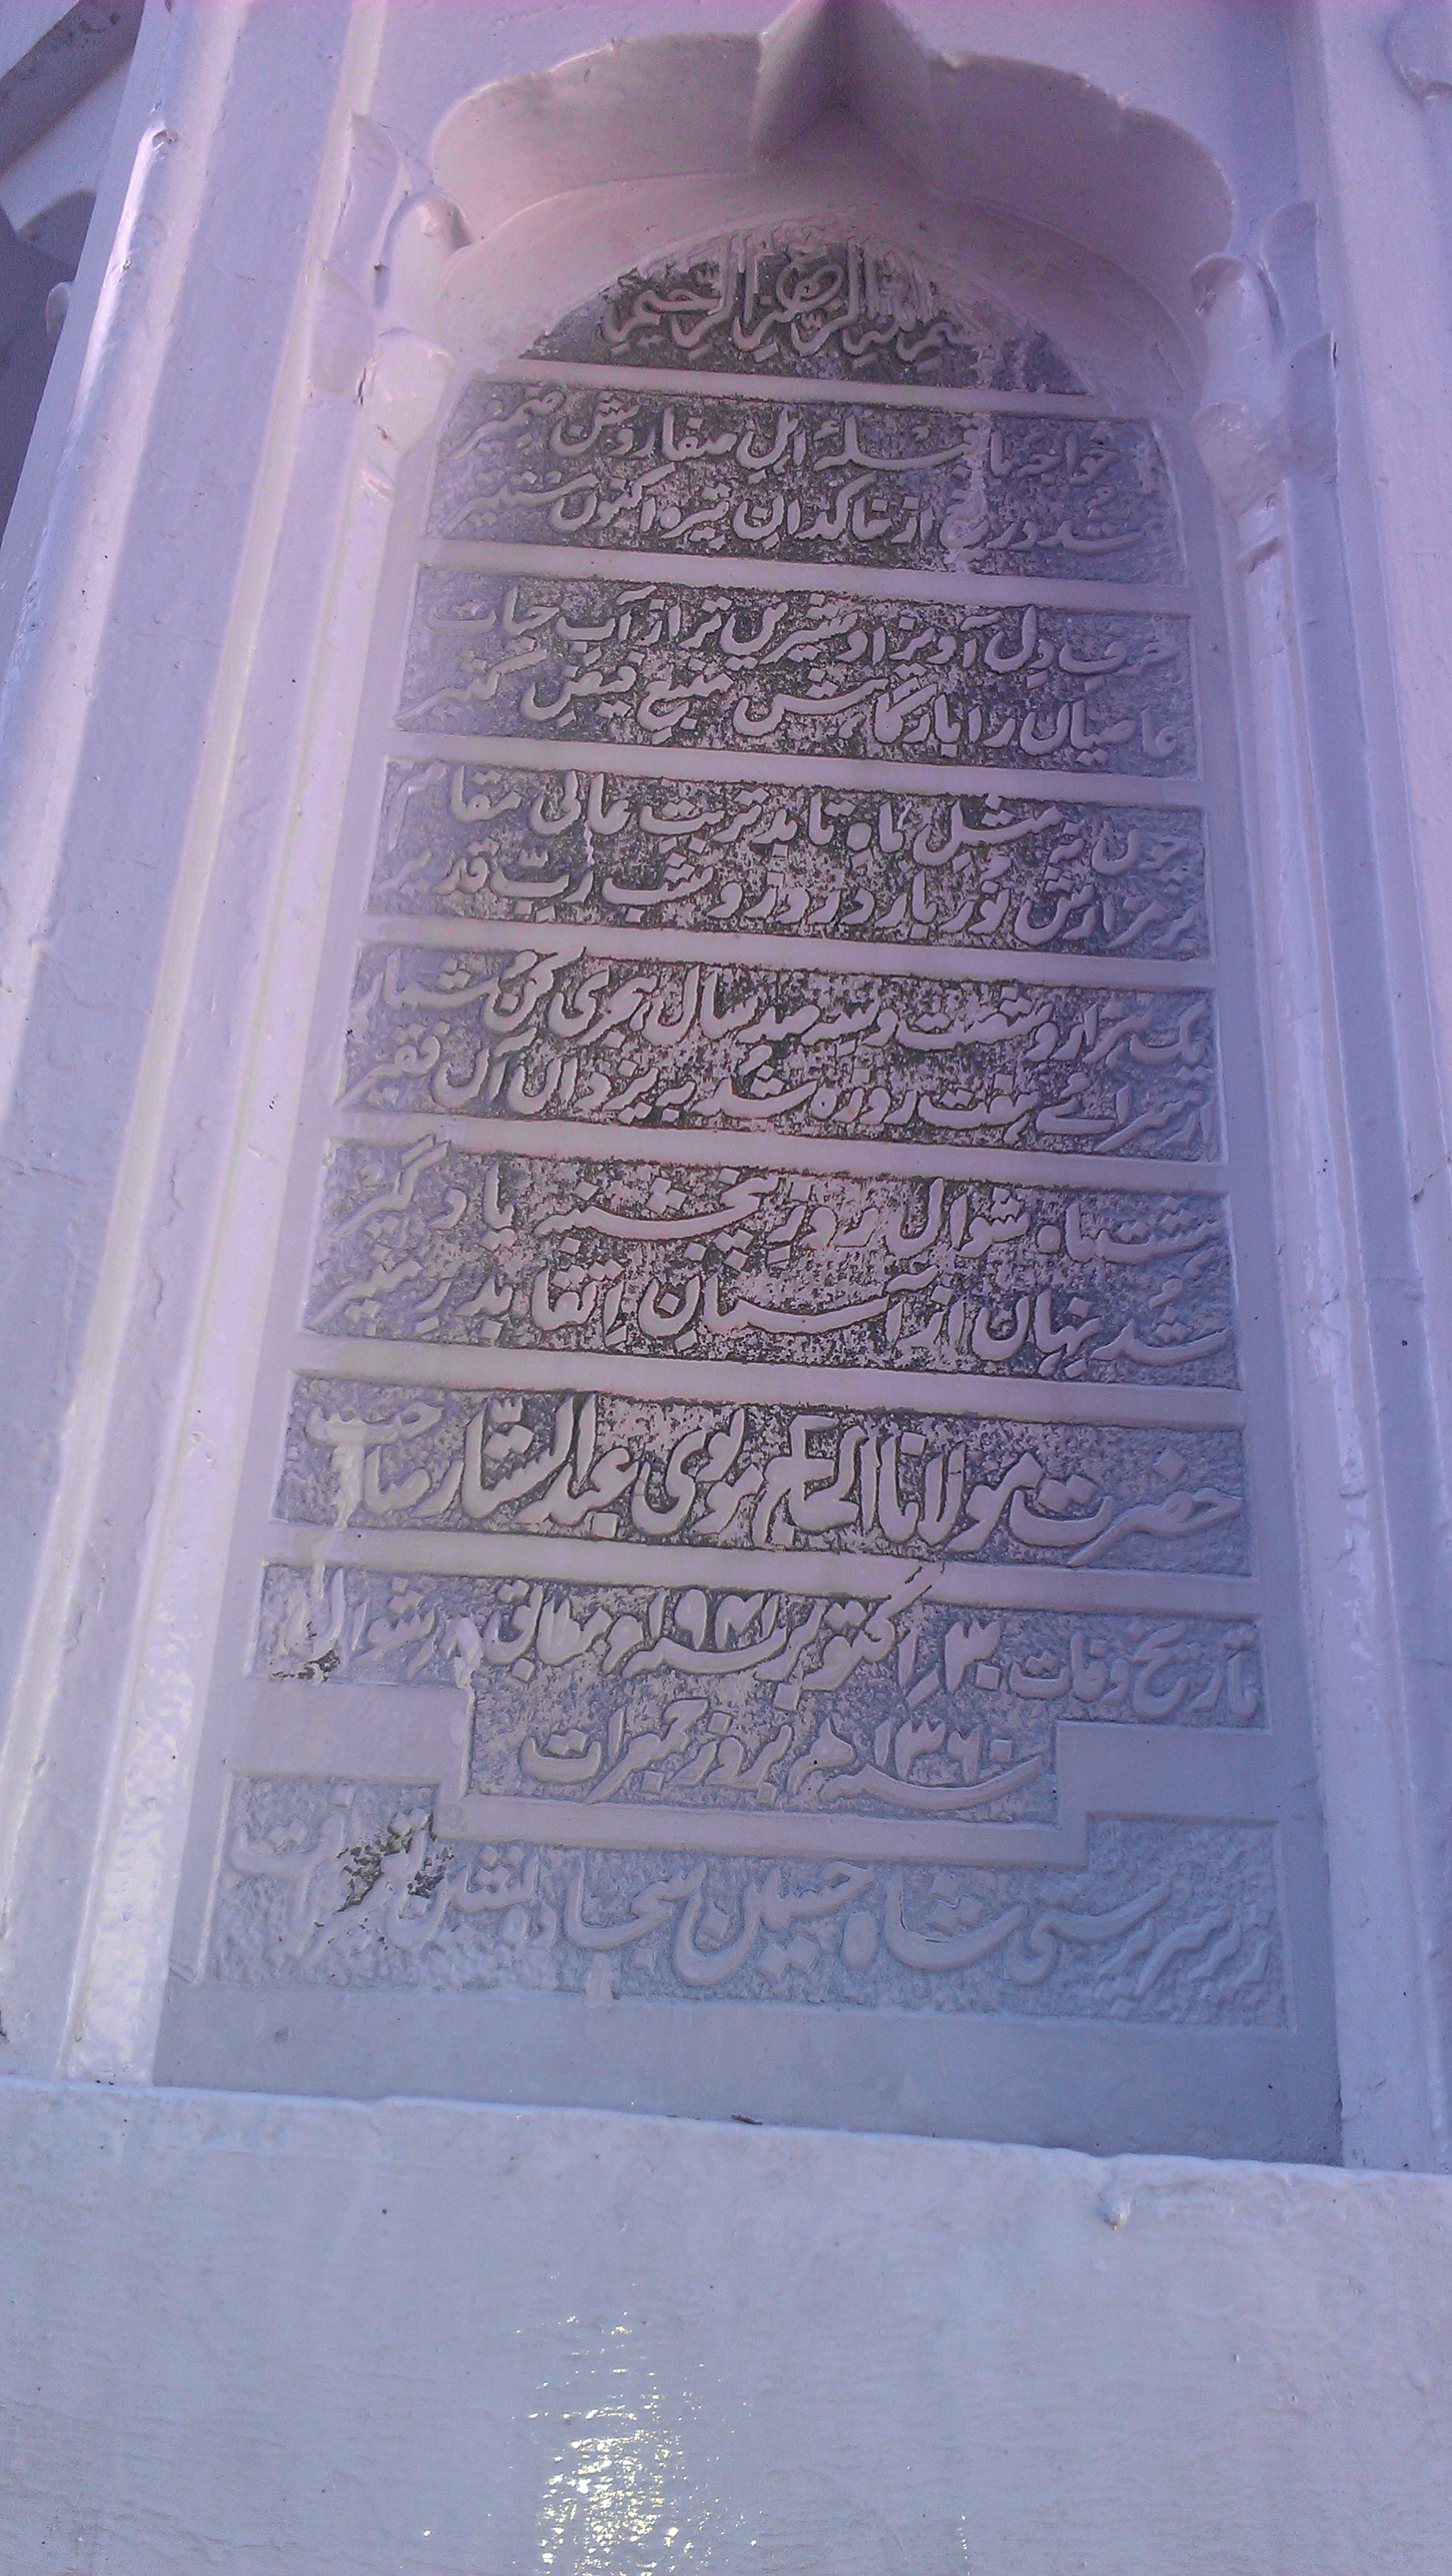 بسم اللہ الرحمن الرحیم
خواجۂ ما قبلۂ اہل صفا روشن ضمیر
شُد دریغ از خاکدان تیرہ اکنوں
حرف دل آویز او شیریں تر از آب حیات
عاصیاں را بارگاہش منبع فیض کثیر
چوں نہ مثلِ ماہ تابد تربت عالی مقام
بر مزارش نُور بارد روز و شب ربّ قدیر
یک ہزار و شصت و سہ صد سال ہجری کن شمار
از سرائے ہفت روزہ شُد بہ یزداں آں فقیر
ہشت ماہ شوال روز پنجشنبہ یاد گیر
شُد نہاں از آسمان اِتقا بدر منیر
حضرت مولانا الحکیم مولوی عبدالستّار صاحب
تاریخ وفات ۳۰ اکتوبر سنہ ۱۹۴۱ء مطابق شوال
سنہ ۱۳۶۰ ھ بروز جمعرات
شاہ حسین سجادہ نشین